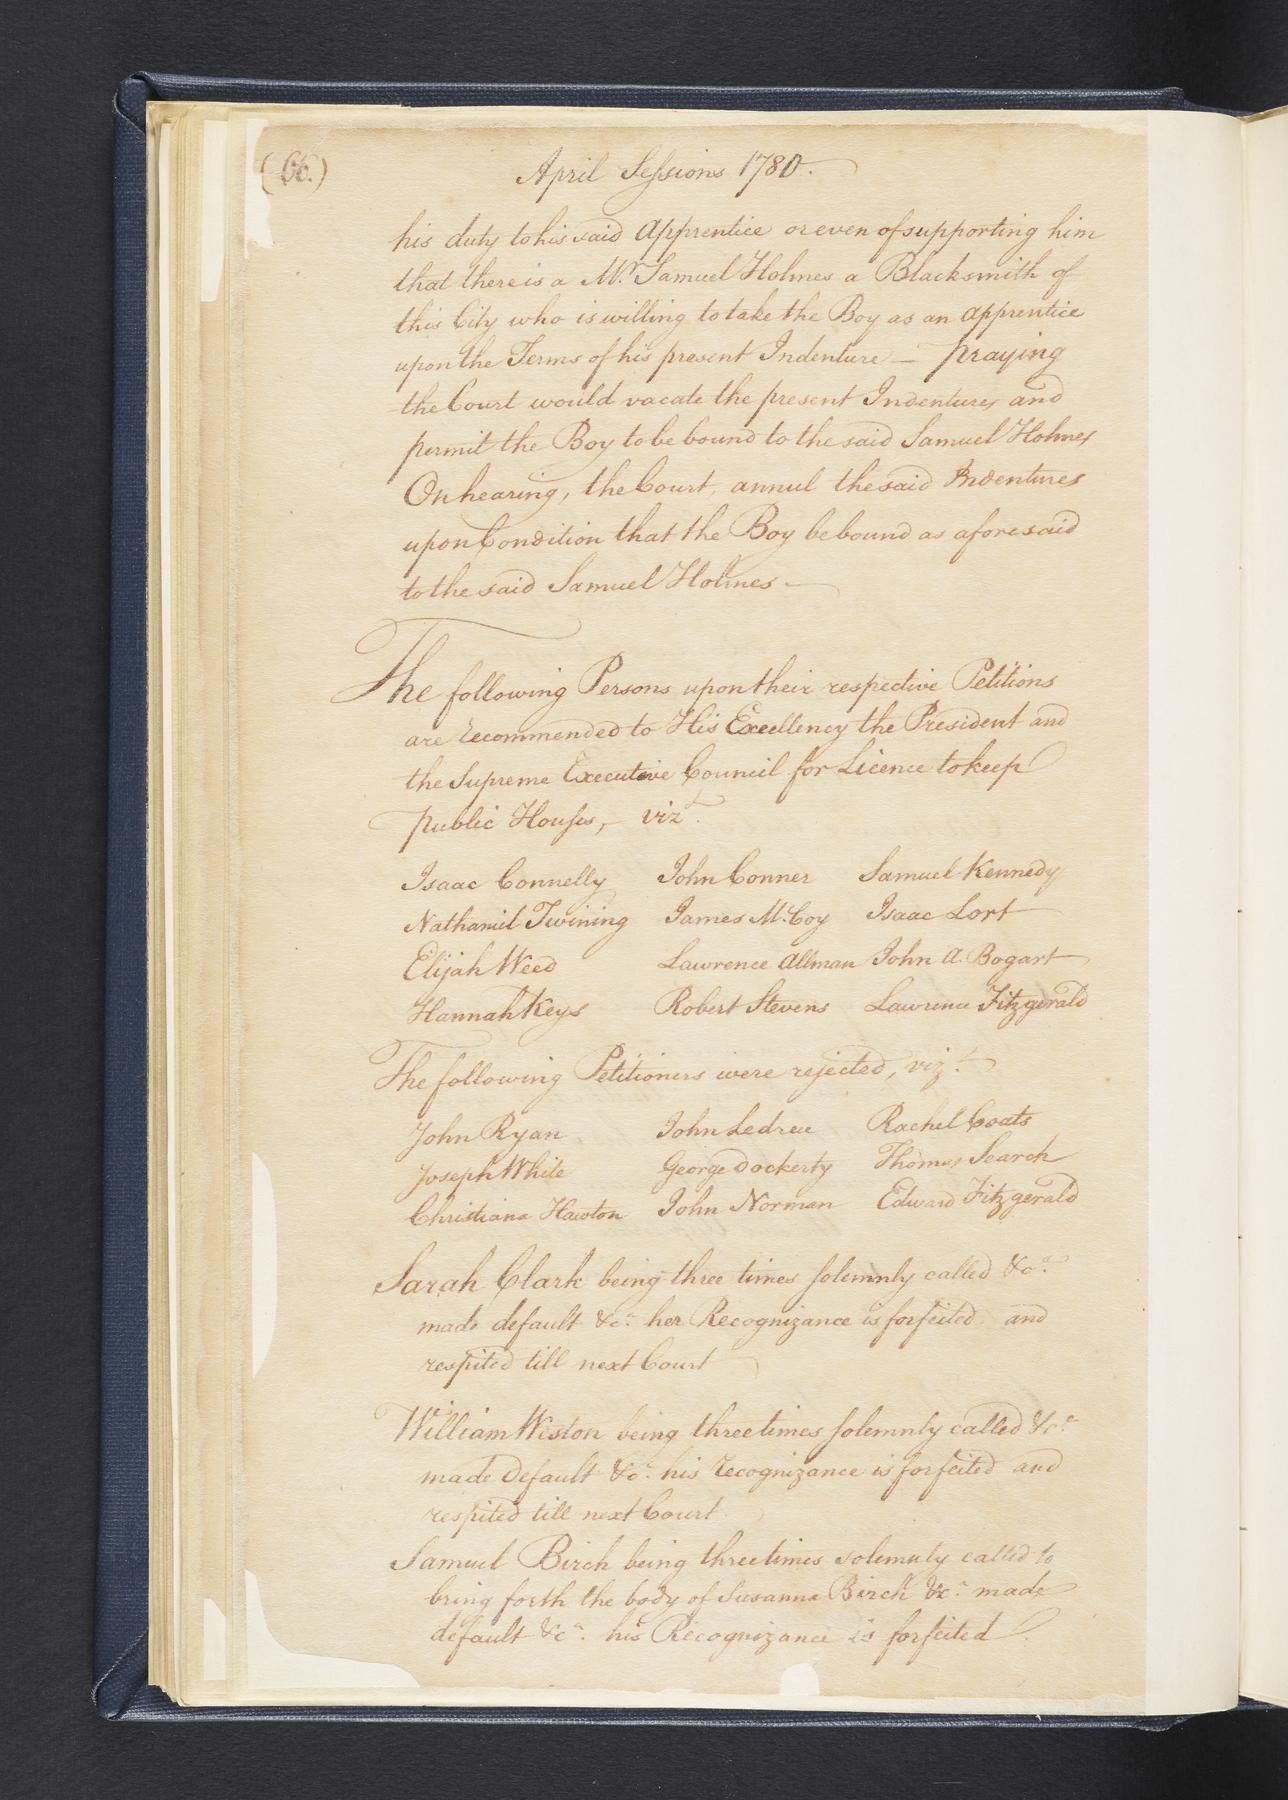 (66.)
April Sessions 1780.
his duty to his said Apprentice or even of supporting him
that there is a Mr. Samuel Holmes a Blacksmith of
this City who is willing to take the Boy as an Apprentice
upon the Terms of his present Indenture — praying
the Court would vacate the present Indentures and
permit the Boy to be bound to the said Samuel Holmes
On hearing, the Court, annul the said Indentures
upon Condition that the Boy be bound as aforesaid
to the said Samuel Holmes —
The following Persons upon their respective Petitions
are recommended to His Excellency the President and
the Supreme Executive Council for Licence to keep
public Houses, — vizt.
Isaac Connelly John Conner Samuel Kennedy
Nathaniel Twining James McCoy Isaac Lort
Elijah Weed Lawrence Allman John A. Bogart
Hannah Keys Robert Stevens Lawrence Fitzgerald
The following Petitioners were rejected, vizt.
John Ryan John Ledrue Rachel Coats
Joseph White George Dockerty Thomas Search
Christiana Hawton John Norman Edward Fitzgerald
Sarah Clark being three times solemnly called &ca.
made default &ca. her Recognizance is forfeited and
respited till next Court
William Weston being three times solemnly called &ca.
made Default &ca. his recognizance is forfeited and
respited till next Court
Samuel Birch being three times solemnly called to
bring forth the body of Susanna Birch &ca. made
default &ca. his Recognizance is forfeited.